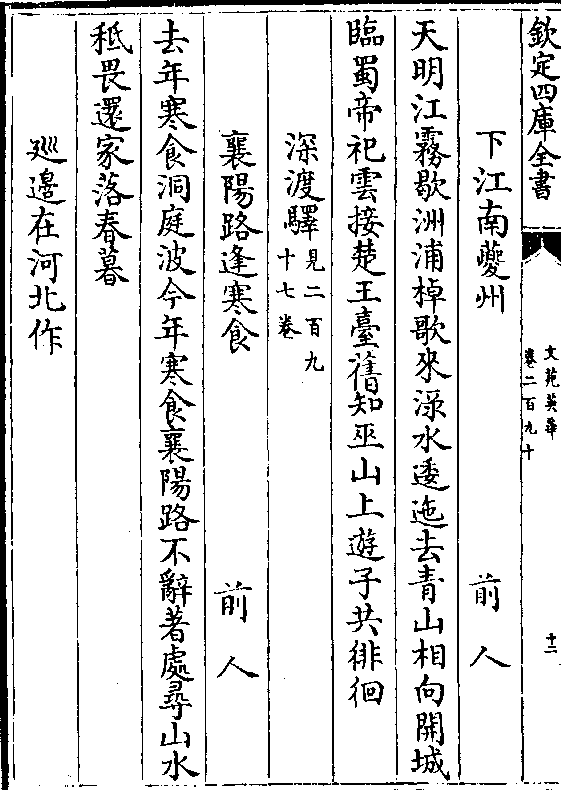 欽定四庫全書
文苑英華
卷二百九十
十二
下江南夔州
前人
天明江霧歇洲浦棹歌來淥水逶迤去青山相向開城
臨蜀帝祀雲接楚王臺舊知巫山上遊子共徘徊
深渡驛見二百九
十七卷
襄陽路逢寒食
前人
去年寒食洞庭波今年寒食襄陽路不辭著處尋山水
秪畏還家落春暮
廵邉在河北作